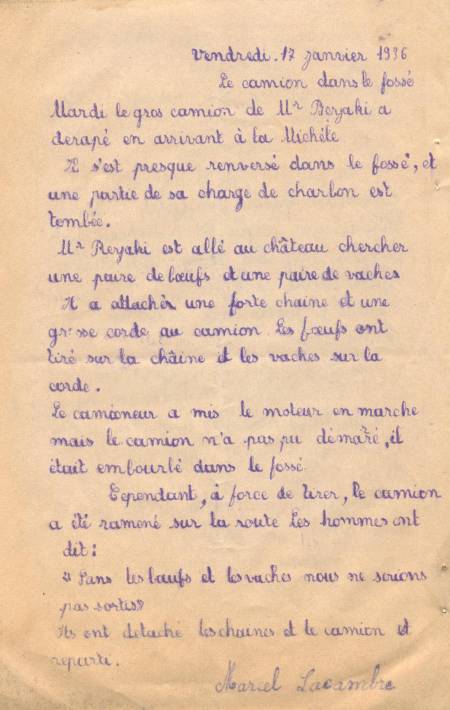 Vendredi. 17 janvier 1936
Le camion dans le fossé
Mardi le gros camion de Mr Rezaki a
derapé en arrivant à la Michèle
Il s'est presque renversé dans le fossé, et
une partie de sa charge de charbon est
tombée.
Mr Rezaki est allé au château chercher
une paire de bœufs et une paire de vaches
Il a attacher une forte chaine et une
grosse corde au camion Les bœufs ont
tiré sur la chaîne et les vaches sur la
corde.
Le camioneur a mis le moteur en marche
mais le camion n'a pas pu démaré, il
était embourbé dans le fossé
Cependant, à force de tirer, le camion
a été ramené sur la route Les hommes ont
dit :
« Sans les bœufs et les vaches nous ne serions
pas sortis»
Ils ont detaché les chaines et le camion et
reparti.
Marcel Lacambre